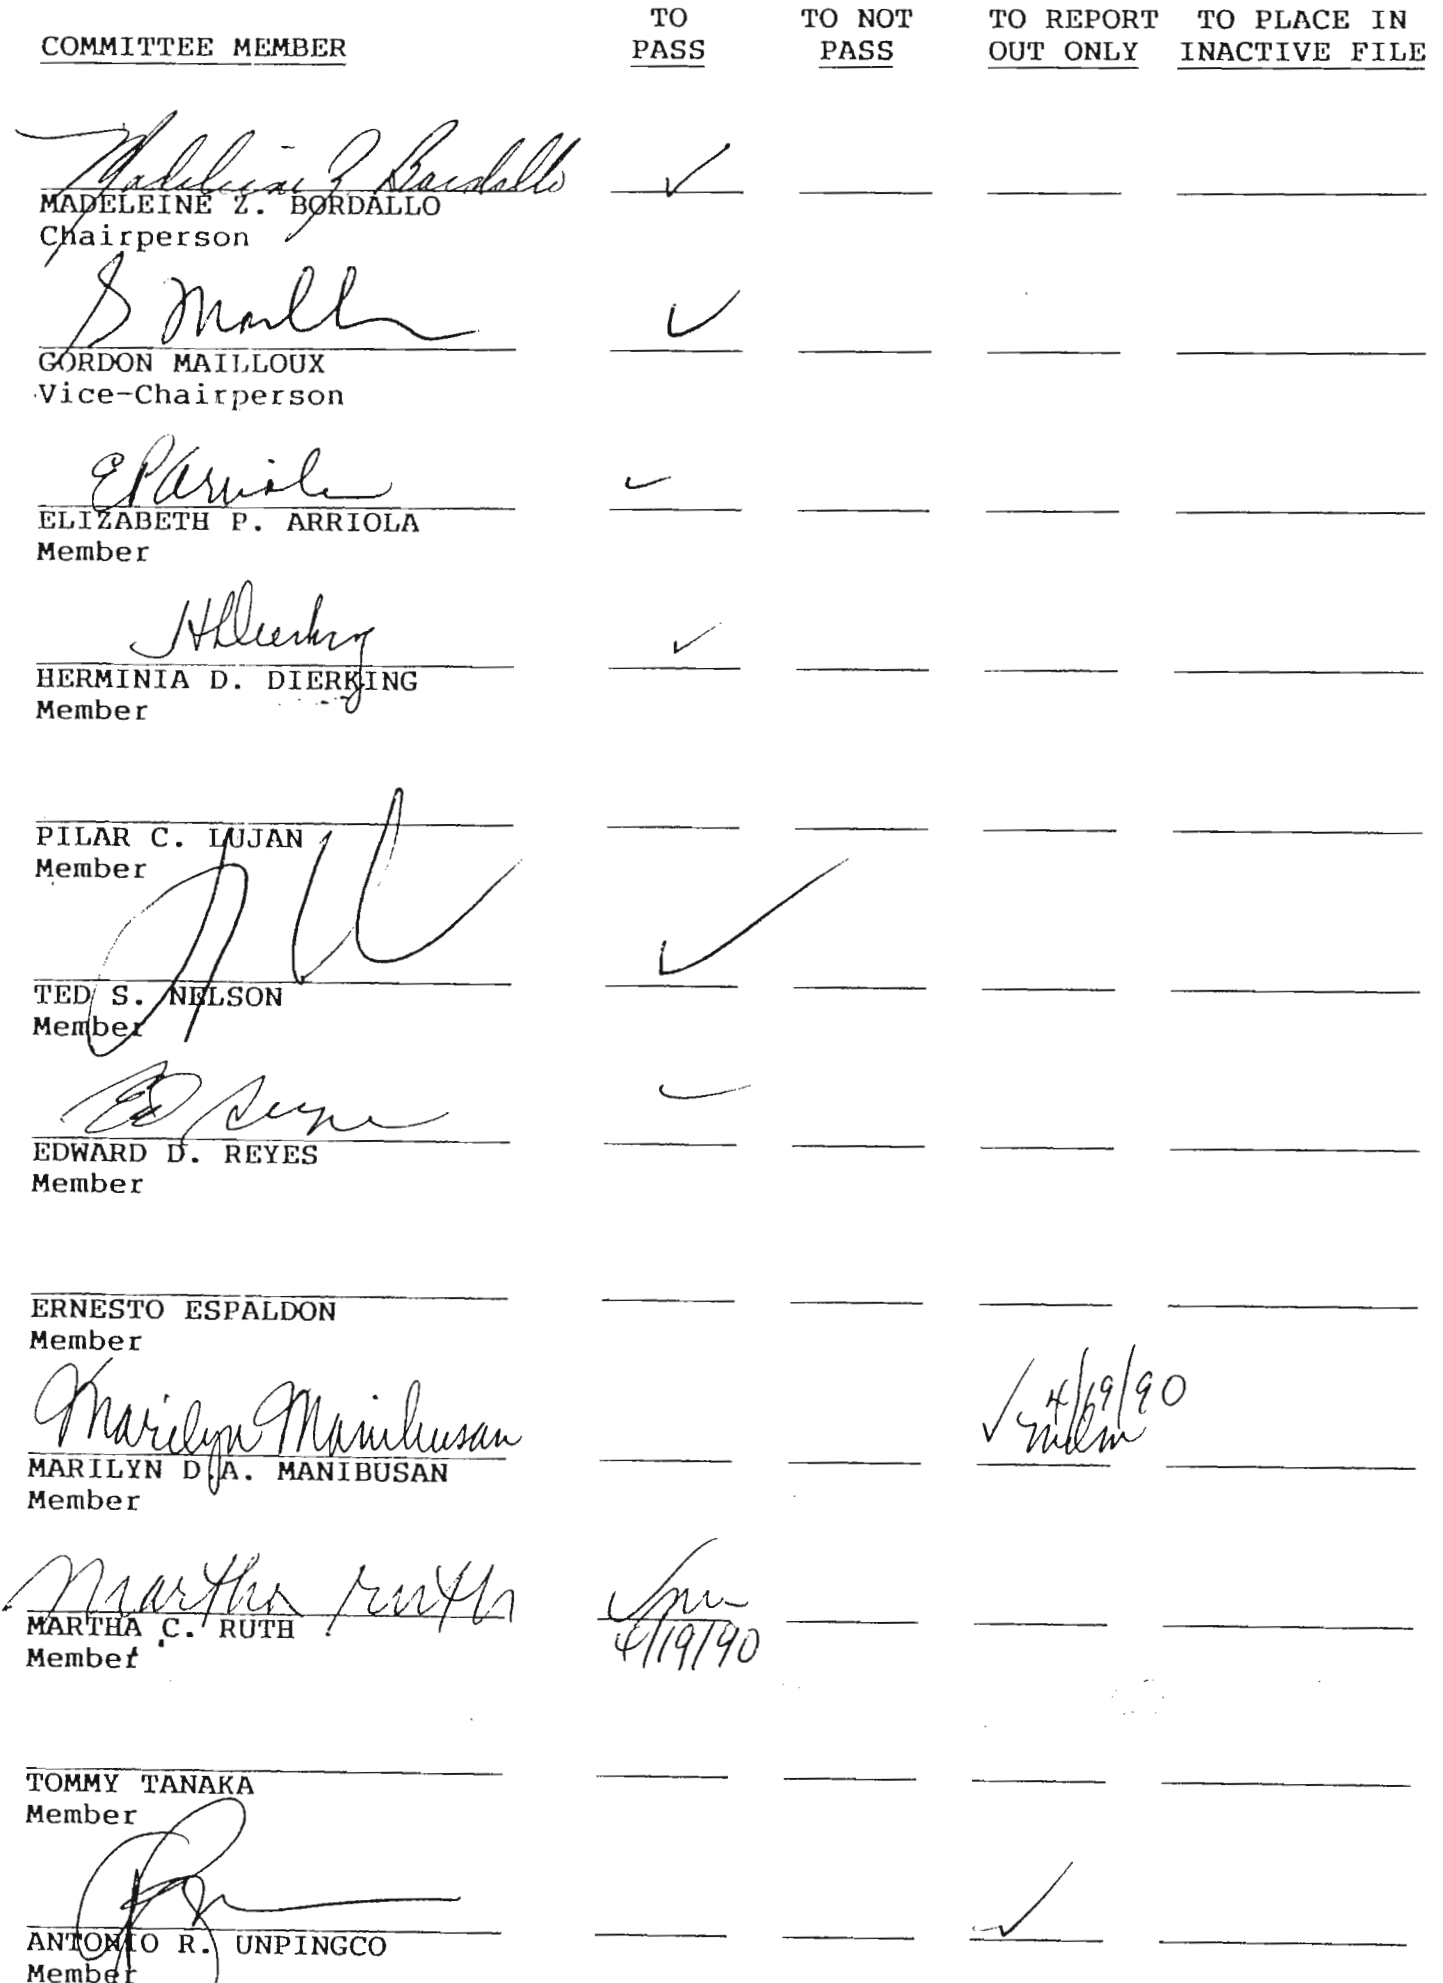 COMMITTEE MEMBER
TO PASS
TO NOT PASS
TO REPORT OUT ONLY
TO PLACE IN INACTIVE FILE
Madeleine Z Bordallo ✓
MADELEINE Z. BORDALLO
Chairperson
G Maill ✓
GORDON MAILLOUX
Vice-Chairperson
EPArriola ✓
ELIZABETH P. ARRIOLA
Member
HDierking ✓
HERMINIA D. DIERKING
Member
PILAR C. LUJAN
Member
✓
TED S. NELSON
Member
Ed Reyes ✓
EDWARD D. REYES
Member
ERNESTO ESPALDON
Member
Marilyn Manibusan ✓ 4/19/90
mdam
MARILYN D.A. MANIBUSAN
Member
Martha Ruth ✓
MARTHA C. RUTH 4/19/90
Member
TOMMY TANAKA
Member
✓
ANTONIO R. UNPINGCO
Member